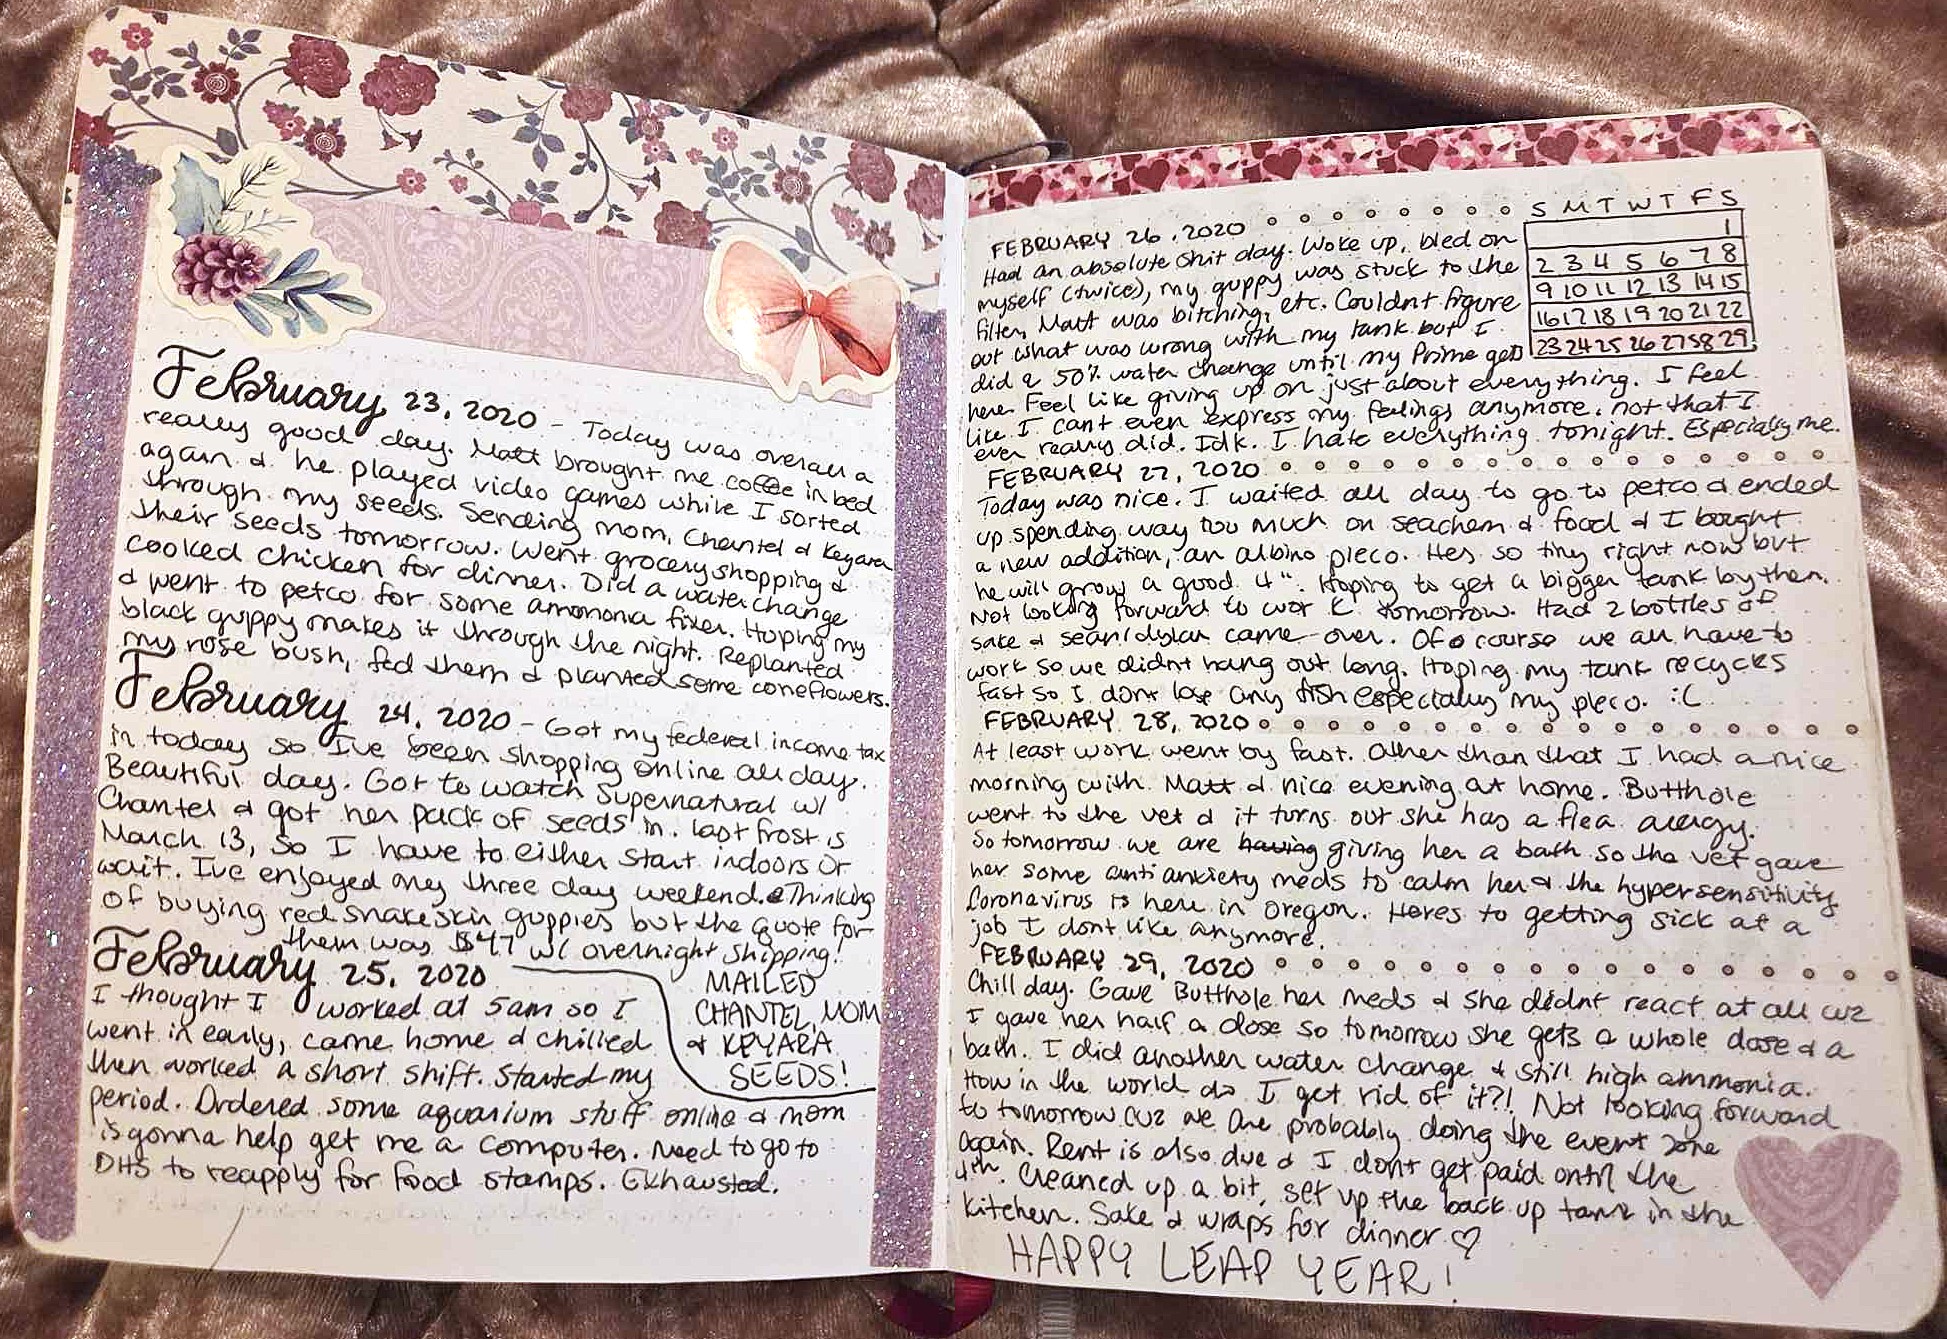 February 23, 2020 - Today was overall a
really good day. Matt brought me coffee in bed
again & he played video games while I sorted
through my seeds. Sending mom, Chantel & Keyara
their seeds tomorrow. Went grocery shopping &
cooked chicken for dinner. Did a water change
& went to petco for some ammonia fixer. Hoping my
black guppy makes it through the night. Replanted
my rose bush, fed them & planted some coneflowers.
February 24, 2020 - Got my federal income tax
in today so I've been shopping online all day.
Beautiful day. Got to watch Supernatural w/
Chantel & got her pack of seeds in. last frost is
March 13, so I have to either start indoors or
wait. I've enjoyed my three day weekend. Thinking
of buying red snakeskin guppies but the quote for
them was $47 w/ overnight shipping!
February 25, 2020
I thought I worked at 5am so I
went in early, came home & chilled
then worked a short shift. Started my
period. Ordered some aquarium stuff online & mom
is gonna help get me a computer. Need to go to
DHS to reapply for food stamps. Exhausted.
MAILED
CHANTEL, MOM
& KEYARA
SEEDS!
FEBRUARY 26, 2020
Had an absolute shit day. Woke up, bled on
myself (twice), my guppy was stuck to the
filter, Matt was bitching, etc. Couldnt figure
out what was wrong with my tank but I
did a 50% water change until my Prime gets
here. Feel like giving up on just about everything. I feel
like I cant even express my feelings anymore, not that I
ever really did. Idk. I hate everything tonight. Especially me.
S M T W T F S
1
2 3 4 5 6 7 8
9 10 11 12 13 14 15
16 17 18 19 20 21 22
23 24 25 26 27 58 29
FEBRUARY 27, 2020
Today was nice. I waited all day to go to petco & ended
up spending way too much on seachem & food & I bought
a new addition, an albino pleco. Hes so tiny right now but
he will grow a good 4". Hoping to get a bigger tank by then.
Not looking forward to work tomorrow. Had 2 bottles of
sake & sean/dylan came over. Of course we all have to
work so we didnt hang out long. Hoping my tank recycles
fast so I dont lose any fish especially my pleco. :C
FEBRUARY 28, 2020
At least work went by fast. Other than that I had a nice
morning with Matt & nice evening at home. Butthole
went to the vet & it turns out she has a flea allergy.
So tomorrow we are having giving her a bath so the vet gave
her some anti anxiety meds to calm her & the hypersensitivity
Coronavirus is here in Oregon. Heres to getting sick at a
job I dont like anymore.
FEBRUARY 29, 2020
Chill day. Gave Butthole her meds & she didnt react at all cuz
I gave her half a dose so tomorrow she gets a whole dose & a
bath. I did another water change & still high ammonia.
How in the world do I get rid of it?! Not looking forward
to tomorrow cuz we are probably doing the event zone
again. Rent is also due & I dont get paid until the
4th. Cleaned up a bit, set up the back up tank in the
kitchen. Sake & wraps for dinner ♡
HAPPY LEAP YEAR!